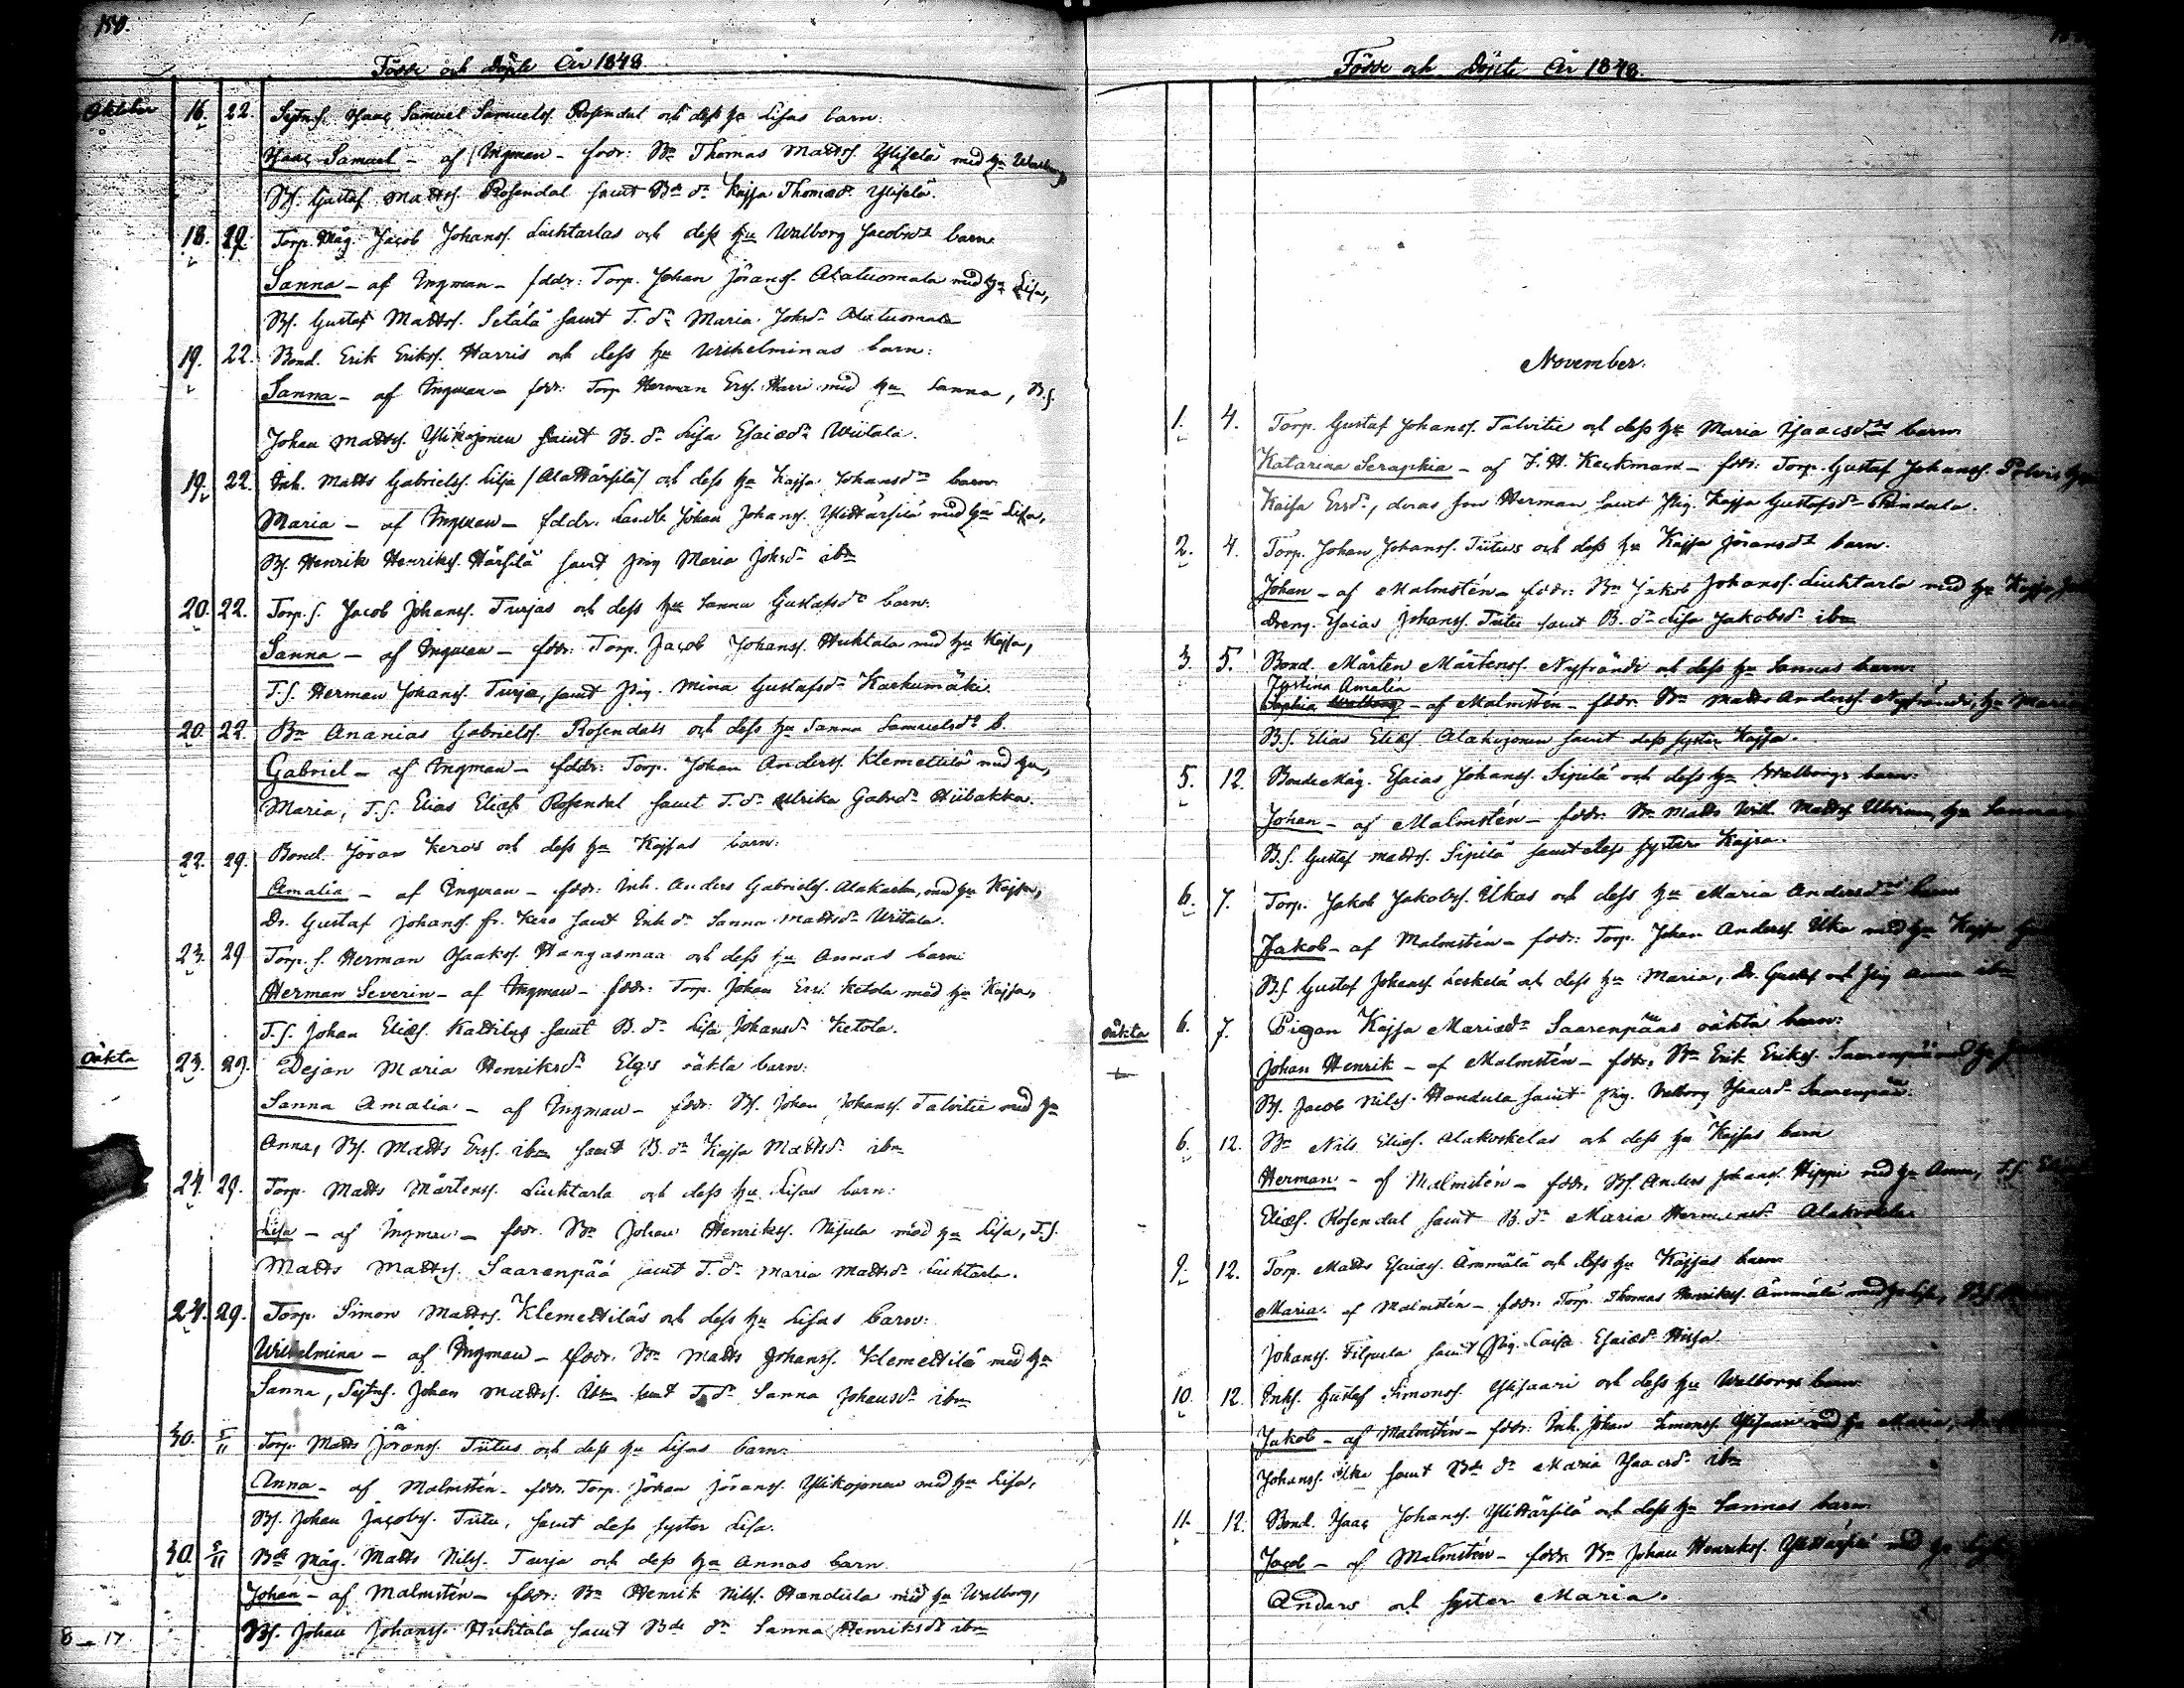 150.
Födde och döpte År 1848.
Oktober 16. 22. Sytn.s. Isaac Samuel Samuelss. Rosendal och dess hu Lisas barn:
Isaac Samuel - af Ingman - fddr: Bn Thomas Mattss. Ylisela med hu Walborg
Bs. Gustaf Mattss. Rosendal samt Bde dr Kajsa Thomasdr Ylisela.
18. 29. Torp. Måg. Jacob Johanss. Luchtarlas och dess hu Walborg Jacobsdrs barn
Sanna - af Ingman - fddr: Torp. Johan Jöranss. Alatuomala med hu Lisa,
Bs. Gustaf Mattss. Setälä samt T. dr Maria Johsdr Alatuomala
19. 22. Bond. Erik Erikss. Harris och dess hu Wilhelminas barn:
Sanna - af Ingman - fddr: Torp Herman Erss. Harri med hu Sanna, B.s.
Johan Mattss. Ylikojonen samt B. dr Lisa Esaiædr Wiitala.
19. 22. Inh. Matts Gabrielss. Lilja (Alattärsilä) och dess hu Kajsa Johansdrs barn
Maria - af Ingman - fddr. Landb. Johan Johanss. Ylittärsilä med hu Lisa,
Bs. Henrik Henrikss. Härsilä samt pig Maria Johsdr ibm
20. 22. Torp.s. Jacob Johanss. Turjas och dess hu Sanna Gustafsdrs barn:
Sanna - af Ingman - fddr: Torp. Jacob Johanss. Huhtala med hu Kajsa,
T.s. Herman Johanss. Turja, samt pig. Mina Gustafsdr Karhumäki.
20. 22. Bn Ananias Gabrielss. Rosendals och dess hu Sanna Samuelsdrs b.
Gabriel - af Ingman - fddr: Torp. Johan Anderss. Klemettilä med hu,
Maria, T.s. Elias Eliæs Rosendal samt T. dr Ulrika Gabrdr Hiibakka.
22. 29. Bond. Jöran Keros och dess hu Kajsas barn:
Amalia - af Ingman - fddr: Inh. Anders Gabrielss. Alakarhu, med hu Kajsa,
Dr. Gustaf Johanss. fr. Kero samt Inh dr Sanna Mattsdr Wiitala.
23. 29 Torp.s. Herman Isaakss. Hangasmaa och dess hu Annas barn:
Herman Severin - af Ingman - fddr: Torp. Johan Erss. Ketola med hu Kajsa,
T.s. Johan Eliæs. Kattilus samt B. dr Lisa Johansdr Ketola.
oäkta 23. 29. Pejan Maria Henriksdr Elgs oäkta barn:
Sanna Amalia - af Ingman - fddr: Bs. Johan Johanss. Talvitie med hu
Anna, Bs. Matts Erss. ibm samt B. dr Kajsa Mattsdr ibm
24. 29. Torp. Matts Mårtenss. Luchtarla och dess hu Lisas barn:
Lisa - af Ingman - fddr. Bn Johan Henrikss. Nisula med hu Lisa, T.s.
Matts Mattss. Saarenpää samt T. dr Maria Mattsdr Luchtarla.
24. 29. Torp. Simon Mattss. Klemettiläs och dess hu Lisas barn:
Wilhelmina - af Ingman - fddr. Bn Matts Johanss. Klemettilä med hu
Sanna, Sytns. Johan Mattss. ibm samt T. dr Sanna Johansdr ibm
30. 5/11 Torp. Matts Jöranss. Tiitus och dess hu Lisas barn:
Anna - af Malmstén - fddr. Torp. Johan Jöranss. Ylikojonen med hu Lisa,
Bs. Johan Jacobss. Tiitu, samt dess syster Lisa.
30. 5/11 Bde Måg. Matts Nilss. Turja och dess hu Annas barn
Johan - af Malmstén - fddr: Bn Henrik Nilss. Handula med hu Walborg,
Bs. Johan Johanss. Huhtala samt Bde dr Sanna Henriksdr ibm
8 - 17
Födde och Döpte År 1848.
November.
1. 4. Torp. Gustaf Johanss. Talvitie och dess hu Maria Isaacsdrs barn
Katarina Seraphia - af J. H. Keckman - fddr: Torp. Gustaf Johanss.
Kaisa Ersdr, deras son Herman samt Pig. Kajsa Gustafsdr Rindala.
2. 4. Torp. Johan Johanss. Tiitus och dess hu Kajsa Jöransdrs barn.
Johan - af Malmstén - fddr: Bn Jakob Johanss. Luchtarla med hu Kajsa,
Dreng. Esaias Johanss. Tiitu samt B. dr Lisa Jakobsdr ibm
3. 5. Bond. Mårten Mårtenss. Nyfrände och dess hu Sannas barn:
Justina Amalia
Sophia Walborg - af Malmstén - fddr: Bn Matts Anderss. Nyfrände, hu Maria
B.s. Elias Eliæs. Alakojonen samt dess syster Kajsa.
5. 12. Bonde Måg. Esaias Johanss. Sipilä och dess hu Walborgs barn:
Johan - af Malmstén - fddr: Bn Matts Will. Mattss hu Sanna
B.s. Gustaf Mattss. Sipilä samt dess syster Kajsa.
6. 7. Torp. Jakob Jakobss. Ukas och dess hu Maria Andersdrs barn
Jakob - af Malmstén - fddr: Torp. Johan Anderss. Uka med hu Kajsa
B.s. Gustaf Johanss. Leskelä och dess hu Maria, Dr. Gustaf och pig Anna ibm
oäkta 6. 7. Pigan Kajsa Mariædr Saarenpääs oäkta barn:
Johan Henrik - af Malmstén - fddr: Bn Erik Erikss. Saarenpää med hu
Bs. Jacob Nilss. Handula samt pig. Walborg Isaacsdr Saarenpää.
6. 12. Bn Nils Eliæs. Alakoskelas och dess hu Kajsas barn
Herman - af Malmstén - fddr. Bs. Anders Johanss. Hippi med hu Anna, T.s.
Eliæs. Rosendal samt B. dr Maria Hermansdr Alakoskela
9. 12. Torp. Matts Esaiæs. Ämmälä och dess hu Kajsas barn
Maria. af Malmstén - fddr: Torp. Thomas Henrikss. Ämmälä med hu Lisa, Bs.
Johanss. Filpula samt Pig. Caisa Esaiædr Hissa
10. 12. Inhs. Gustaf Simonss. Ylisaari och dess hu Walborgs barn
Jakob - af Malmstén - fddr: Inh. Johan Simonss. Ylisaari med hu Maria,
Johanss. Uka samt Bde dr Maria Isaacsdr ibm
11. 12. Bond. Isaac Johanss. Ylittärsilä och dess hu Sannas barn
Jacob - af Malmstén - fddr. Bn Johan Henrikss. Ylittärsilä med hu
Anders och syster Maria.